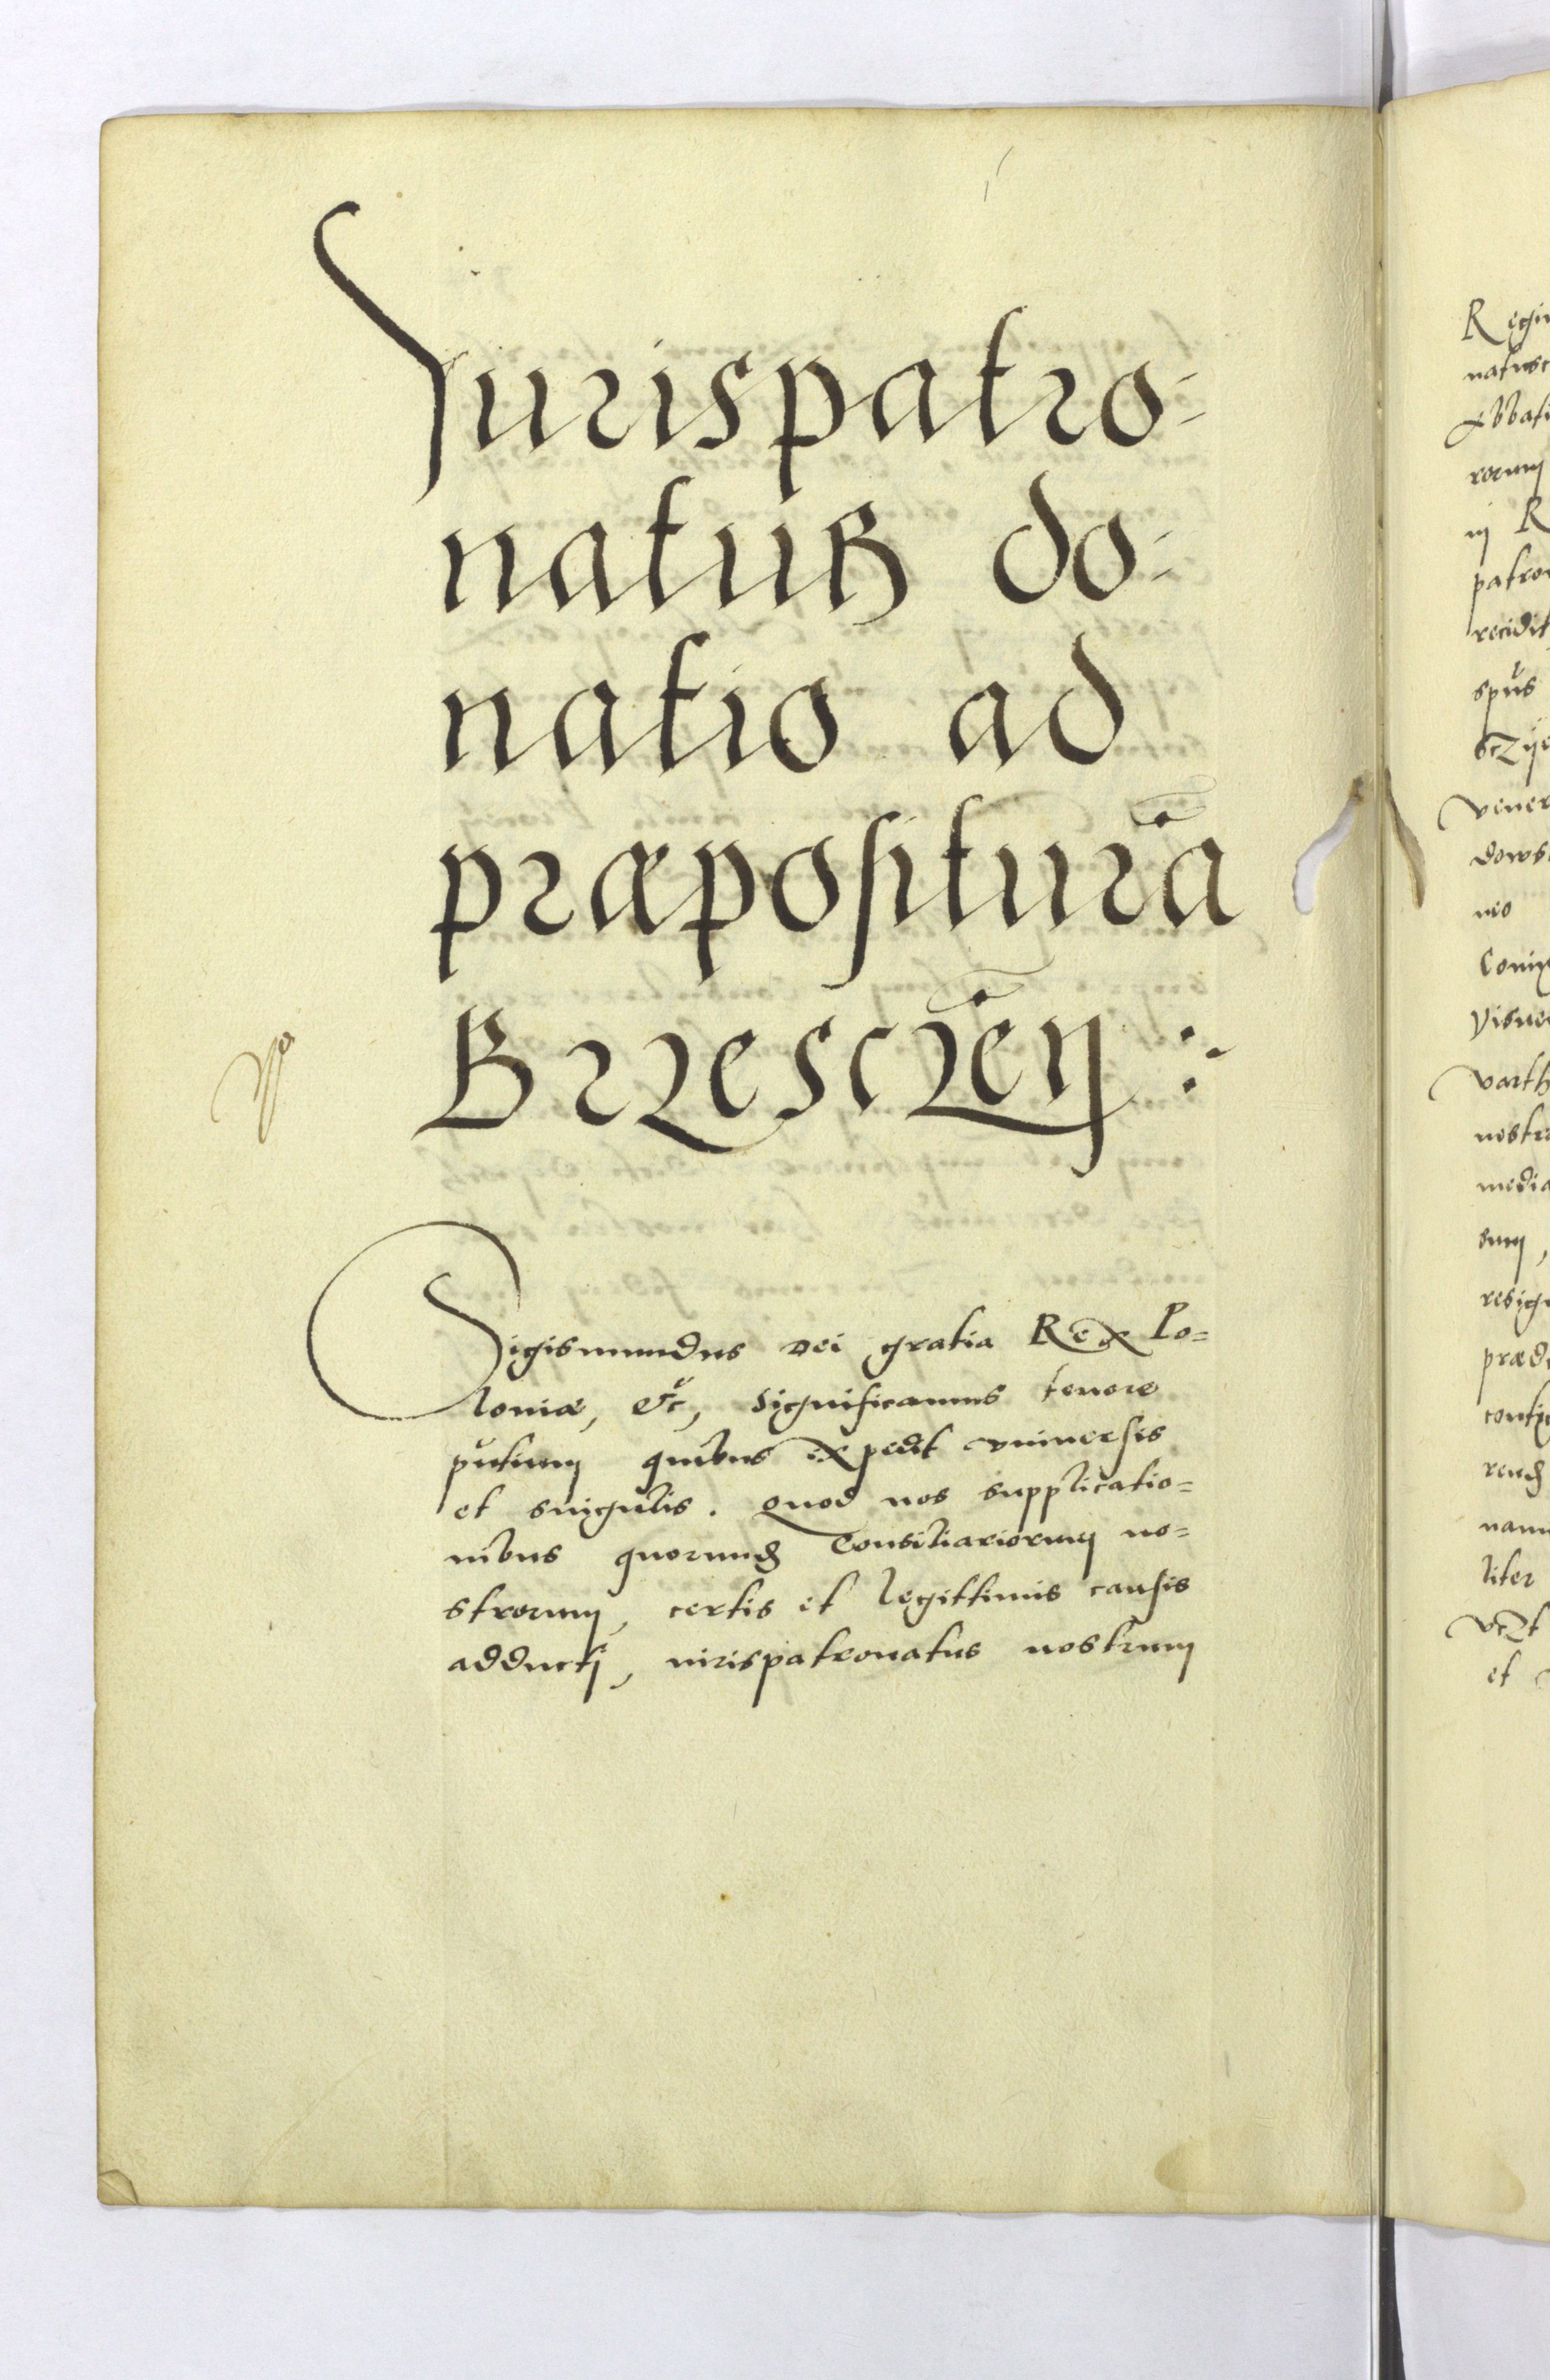 Jurispatro=
natus do=
natio ad
præpositurā
Brzesczēn :
Sigismundus Dei gratia Rex Po=
loniæ, &c, Significamus tenore
pūtium quibus expedit vniuersis
et singulis. Quod nos supplicatio=
nibus quorund Consiliariorum no=
strorum, certis et legittimis causis
adducti, iurispatronatus nostrum
Regin
natusc
rorum
patron
recidit
spūs
vener
dows
neo
varth
nostr
media
sum,
resign
præd
liter
et